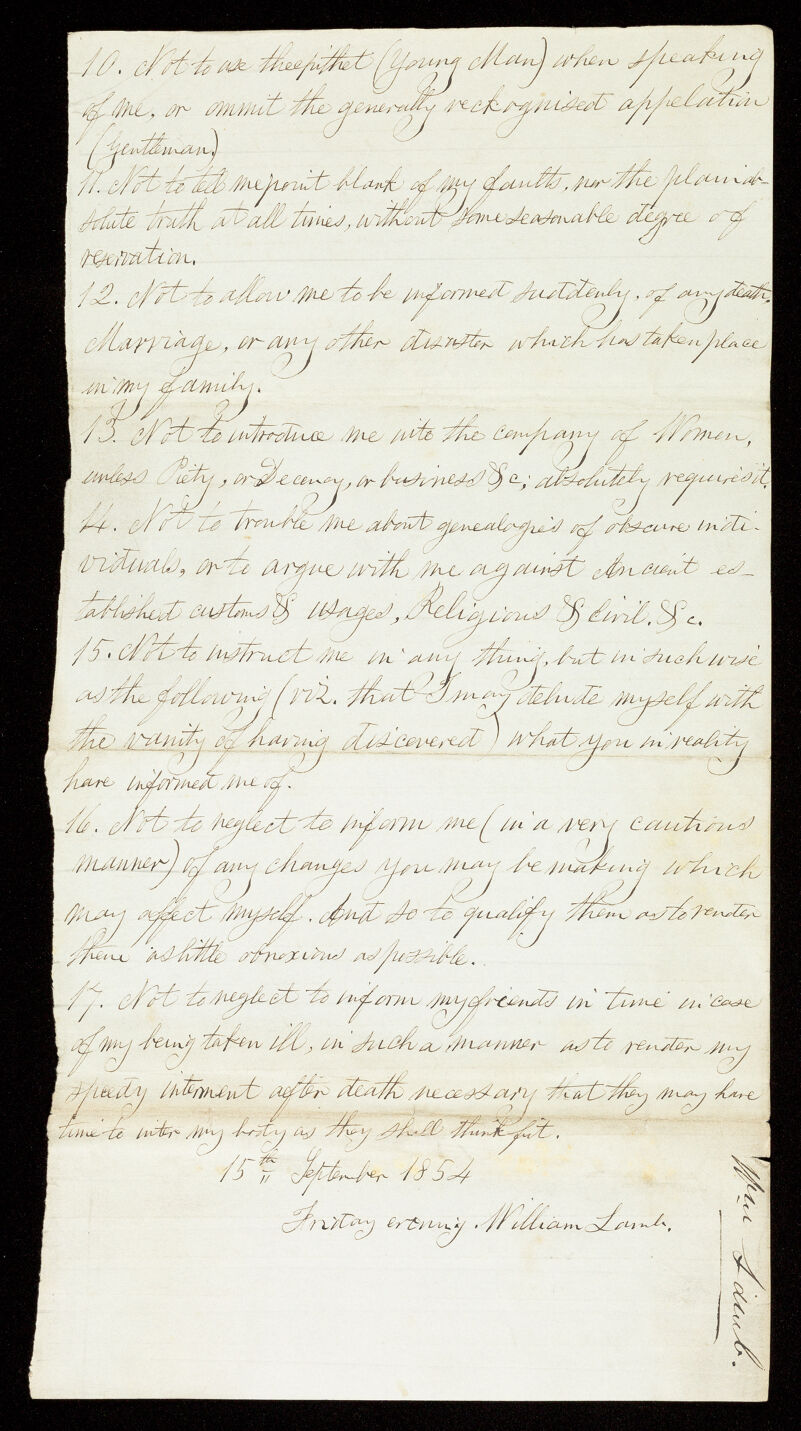 10. Not to use the epithet (Young Man) when speaking
of me, or ommit the generally reckognised appelation
(Gentleman)
11. Not to tell me point blank of my faults, nor the plain ab-
solute truth at all times, without some seasonable degree of
reservation.
12. Not to allow me to be informed suddenly, of any death,
Marriage, or any other disaster which has taken place
in my family.
13. Not to introduce me into the company of Women,
unless Piety, or Decency, or business &c; absolutely requires it.
14. Not to trouble me about genealogies of obscure indi-
viduals, or to argue with me against Ancient es-
tablished customs & usages, Religious & Civil. &c.
15. Not to instruct me in any thing, but in such wise
as the following (viz. that I may delude myself with
the vanity of having discovered) what you in reality
have informed me of.
16. Not to neglect to inform me (in a very cautious
manner) of any changes you may be making which
may affect myself. And so to qualify them as to render
them as little obnoxious as possible.
17. Not to neglect to inform my friends in time in case
of my being taken ill, in such a manner as to render my
speedy interment after death necessary that they may have
time to inter my body as they shall think fit.
15th September 1854
Friday evening. William Lamb.
Wm Lamb.